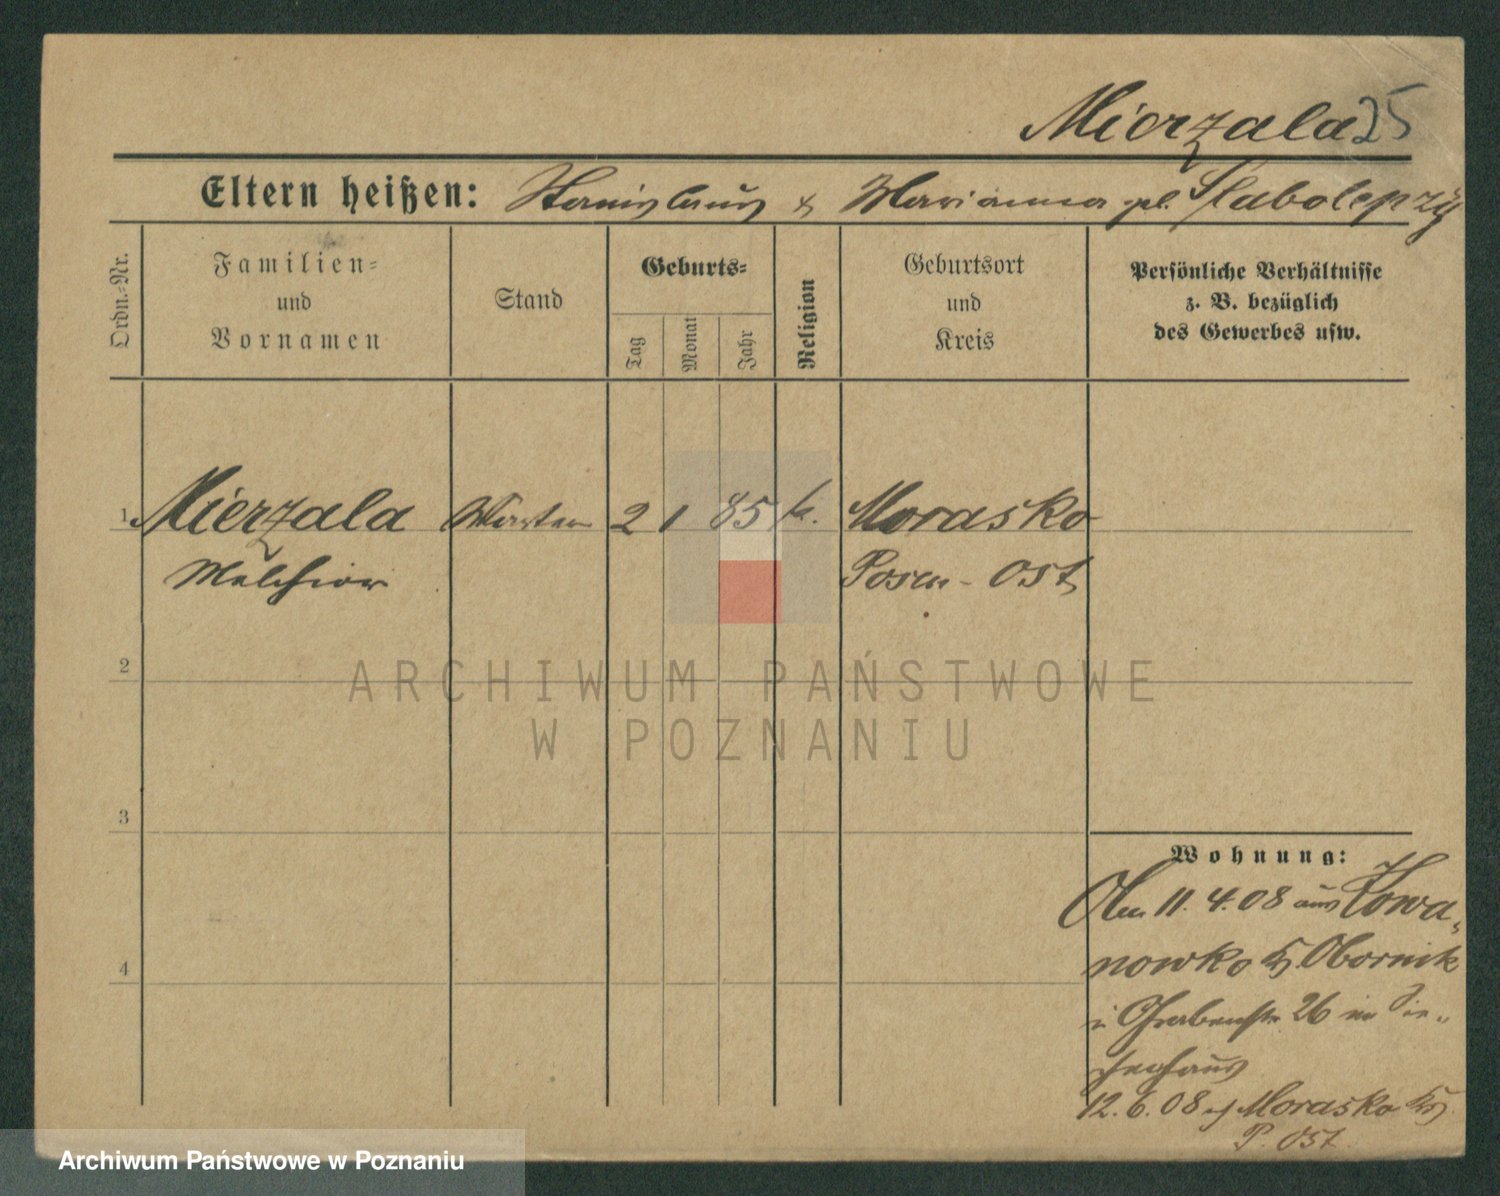 Mierzala 25
Eltern heißen: Stanislaus & Marianna Slabolepzy
Ordn.-Nr.
Familien-
und
Vornamen
Stand
Geburts-
Tag
Monat
Jahr
Religion
Geburtsort
und
Kreis
Persönliche Verhältnisse
z. B. bezüglich
des Gewerbes usw.
1 Mierzala 2 1 85 k. Morasko
Melchior Posen-Ost
2
3
4
Wohnung:
11.4.08 aus Kowa-
nowko Obornik
Grabenstr 26 im Sie-
chenhaus
12.6.08 Morasko
P. Ost
ARCHIWUM PAŃSTWOWE
W POZNANIU
Archiwum Państwowe w Poznaniu